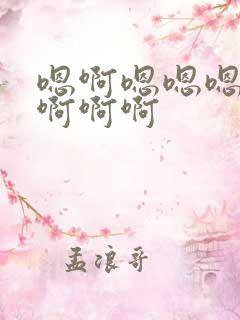 嗯啊嗯嗯嗯
啊啊啊
孟浪哥